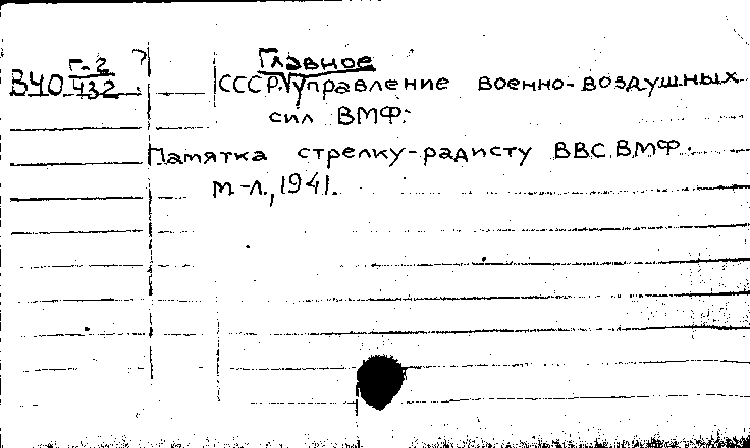 Г-2
В40 432
Главное
СССР. Управление военно-воздушных
сил ВМФ.
Памятка стрелку-радисту ВВС ВМФ.
М.-Л., 1941.